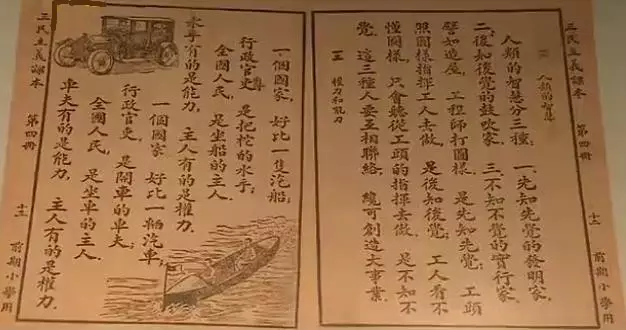 三民主義課本 第四冊 十二 前期小學用
人類的智慧
人類的智慧分三種：一、先知先覺的發明家，
二、後知後覺的鼓吹家．三、不知不覺的實行家．
譬如造屋，工程師打圖樣 是先知先覺；工頭
照圖樣指揮工人去做，是後知後覺；工人看不
懂圖樣 只會聽從工頭的指揮去做．是不知不
覺．這三種人要互相聯絡，纔可創造大事業．
權力和能力
一個國家，好比一隻汽船；
行政官吏，是把柁的水手；
全國人民，是坐船的主人．
水手有的是能力，主人有的是權力．
一個國家 好比一輛汽車，
行政官吏，是開車的車夫；
全國人民，是坐車的主人．
車夫有的是能力，主人有的是權力．
三民主義課本 第四冊 十三 前期小學用